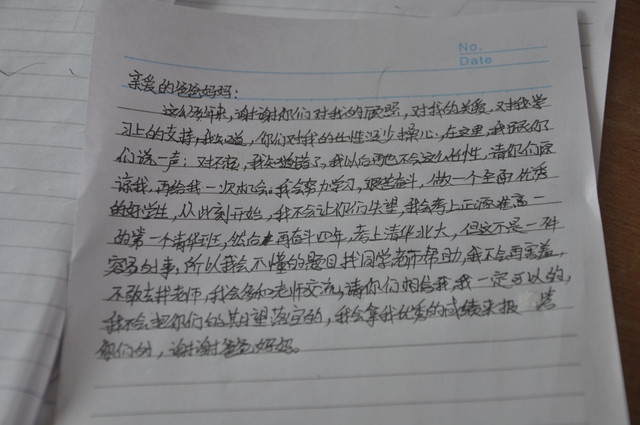 No.
Date
亲爱的爸爸妈妈:
这么多年来,谢谢你们对我的照,对我的关爱,对我学
习上的支持,我知道,你们对我的任性没少操心,在这里,我跟你
们说一声:对不起,我知道错了,我以后再也不会这么任性,请你们原
谅我,再给我一次机会。我会努力学习,艰苦奋斗,做一个全面优秀
的好学生,从此刻开始,我不会让你们失望,我会考上正高一
的第一个清华班,然后再奋斗四年,考上清华北大,但这不是一件
容易的事,所以我会不懂的题目找同学老师帮助,我不会再害羞,
不敢去找老师,我会多和老师交流,请你们相信我,我一定可以的,
我不会把你们的期望落空的,我会拿我优秀的成绩来报答
你们的,谢谢爸爸妈妈。